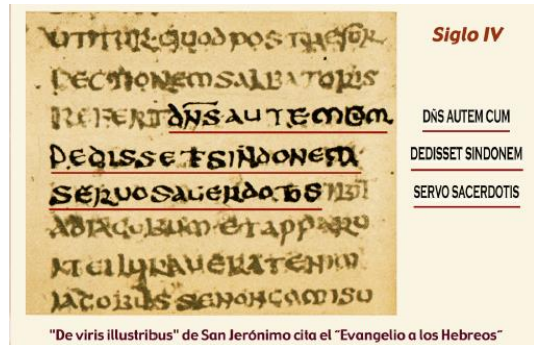 UTITUR QUOD POST RESUR
RECTIONEM SALBATORIS
REFERT DN̄S AUTEM CUM
DEDISSET SINDONEM
SERUO SACERDOTIS IBIT
AD IACOBUM ET APPARU
IT EI IURAUERAT ENIM
IACOBUS SE NON COMISU
Siglo IV
DN̄S AUTEM CUM
DEDISSET SINDONEM
SERVO SACERDOTIS
"De viris illustribus" de San Jerónimo cita el ˝Evangelio a los Hebreos˝